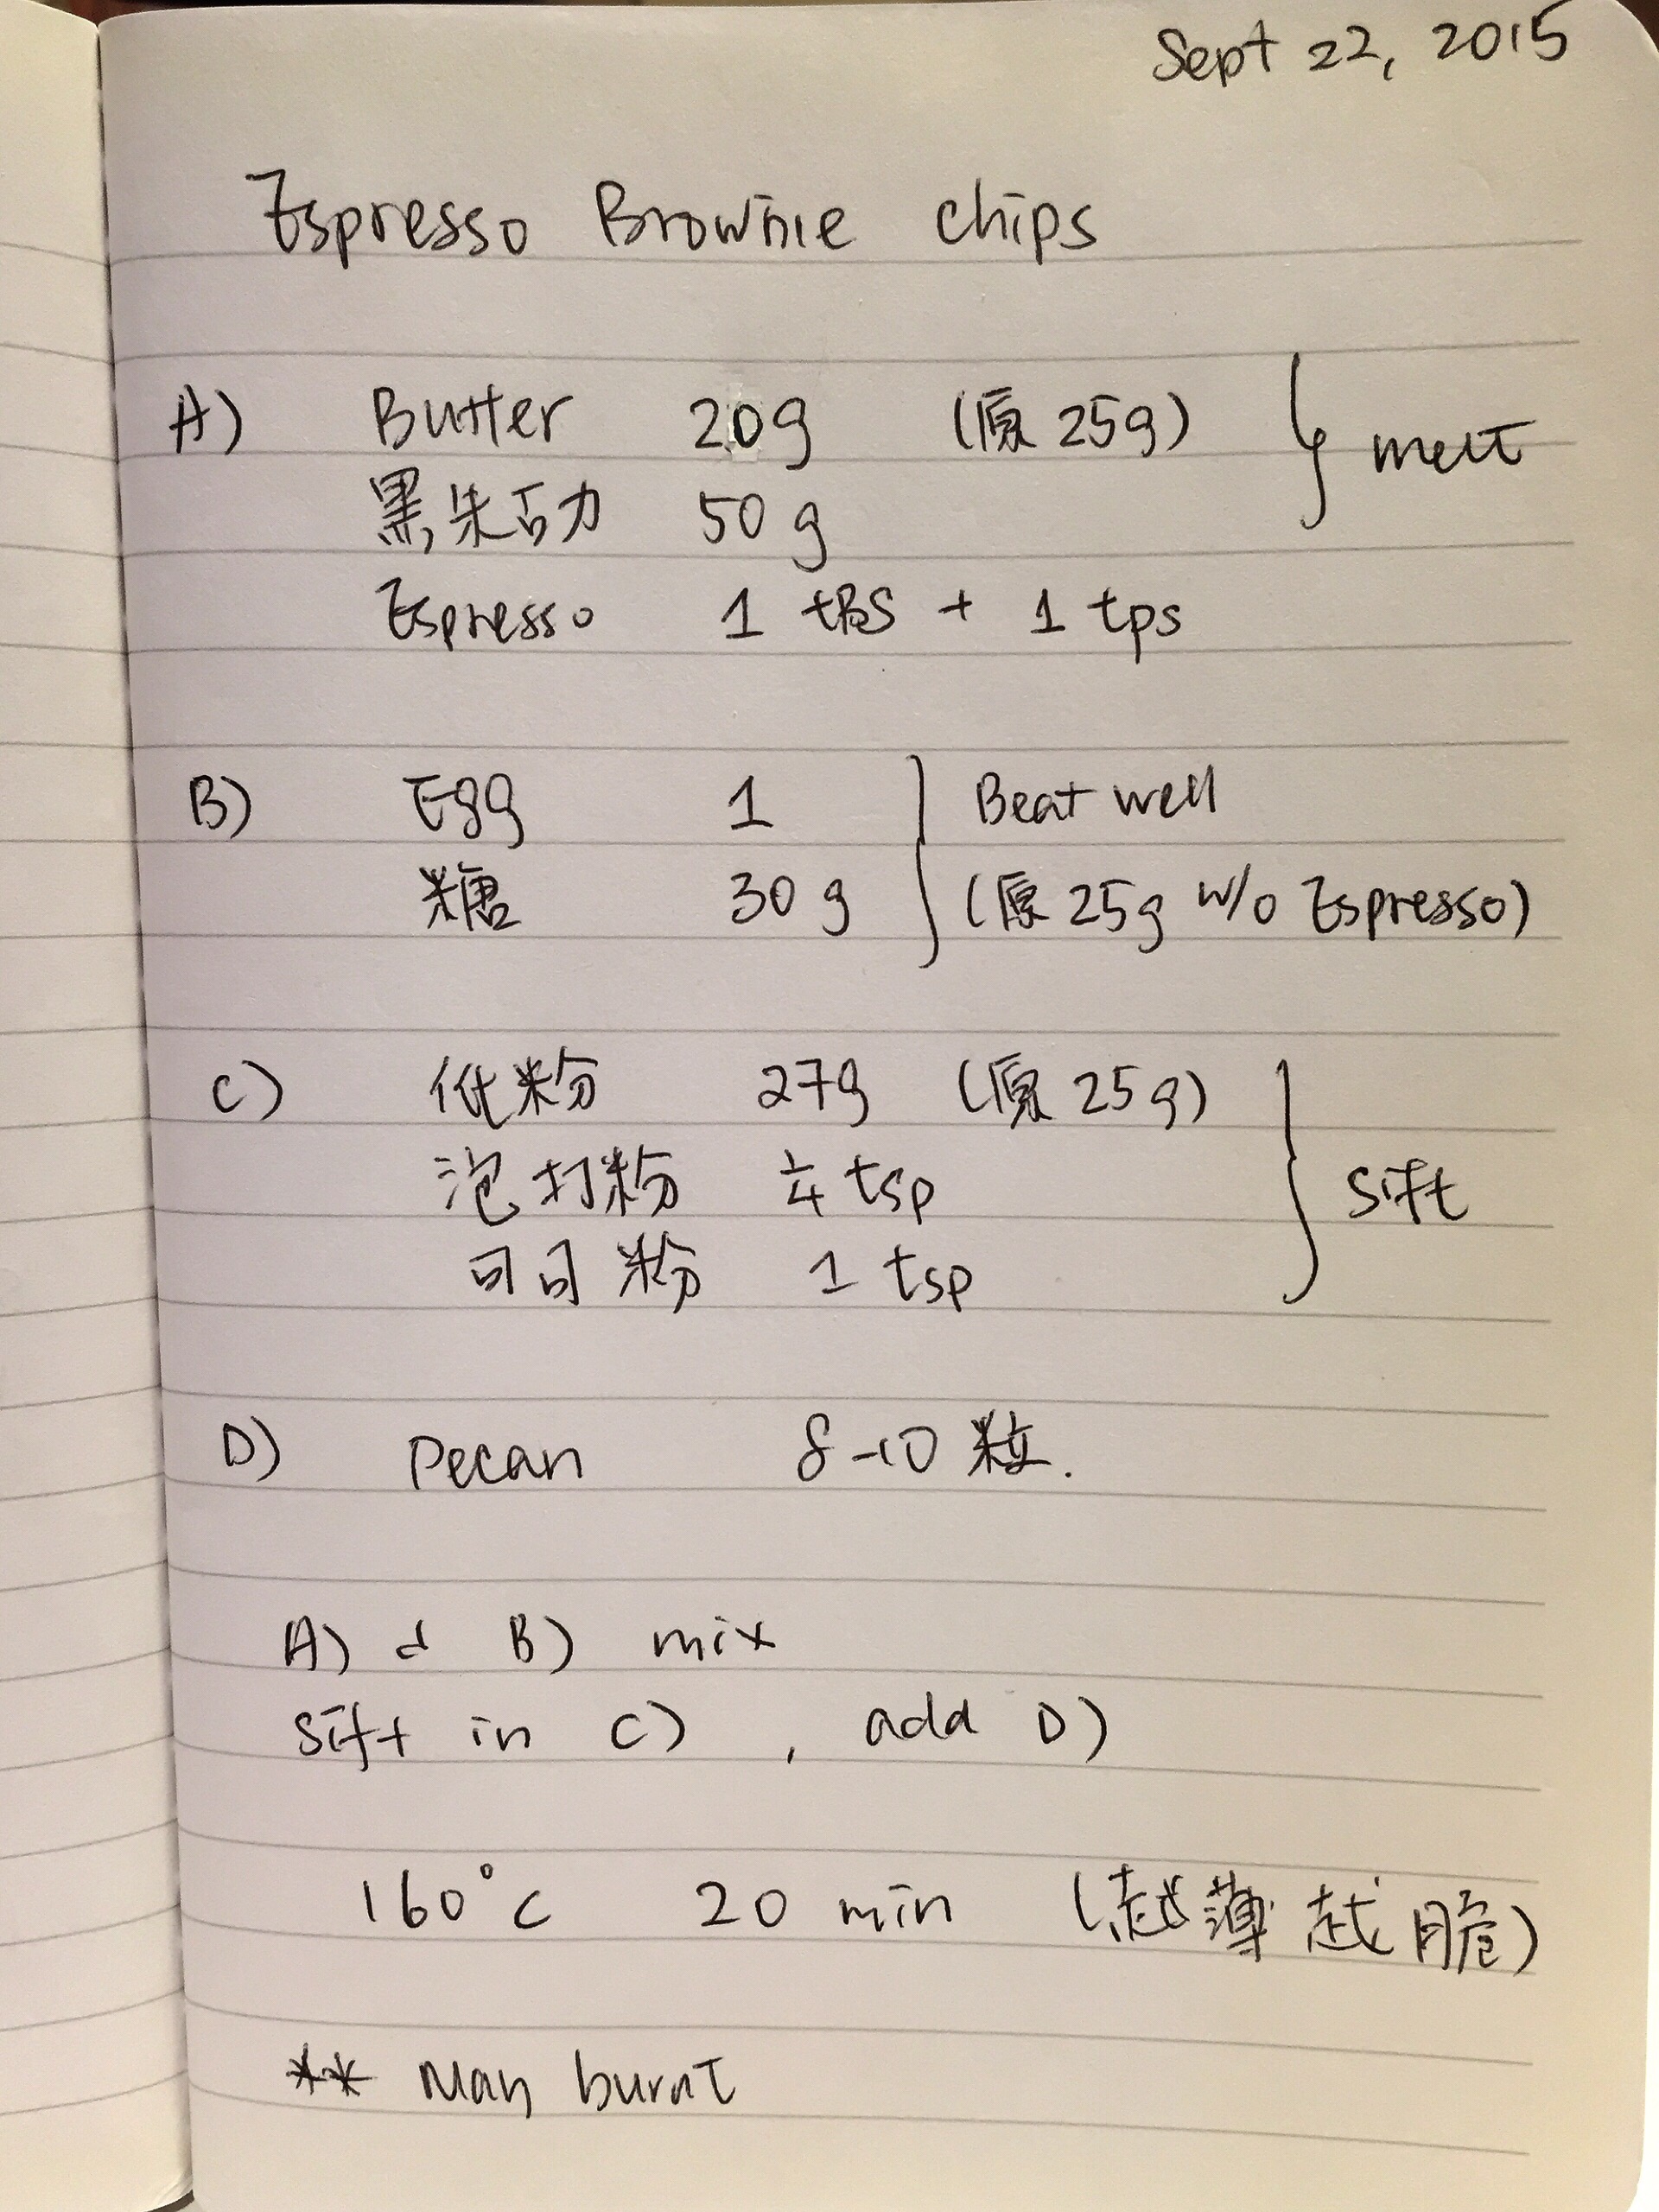 Sept 22, 2015
Espresso Brownie chips
A) Butter 20g (原25g) } melt
黑朱古力 50g
Espresso 1 tBS + 1 tps
B) Egg 1 } Beat well
糖 30g (原25g w/o Espresso)
C) 低粉 27g (原25g)
泡打粉 1/4 tsp } Sift
可可粉 1 tsp
D) Pecan 8-10粒.
A) & B) mix
Sift in C) , add D)
160°C 20 min (越薄越脆)
** May burnt